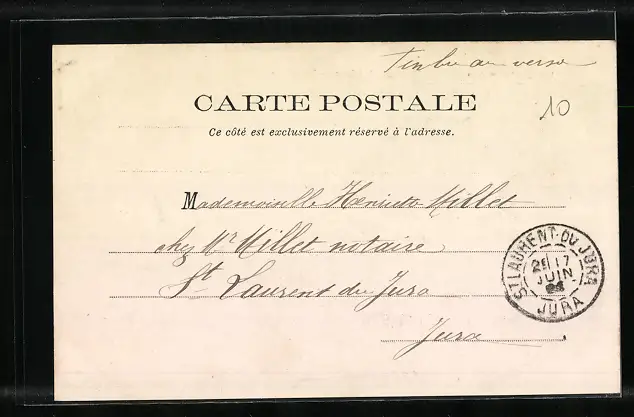 Timbre au verso
CARTE POSTALE
10
Ce côté est exclusivement réservé à l'adresse.
Mademoiselle Henriette Millet
chez Mr Millet notaire
St Laurent du Jura
Jura
ST LAURENT-DU-JURA
2E 17
JUIN
JURA